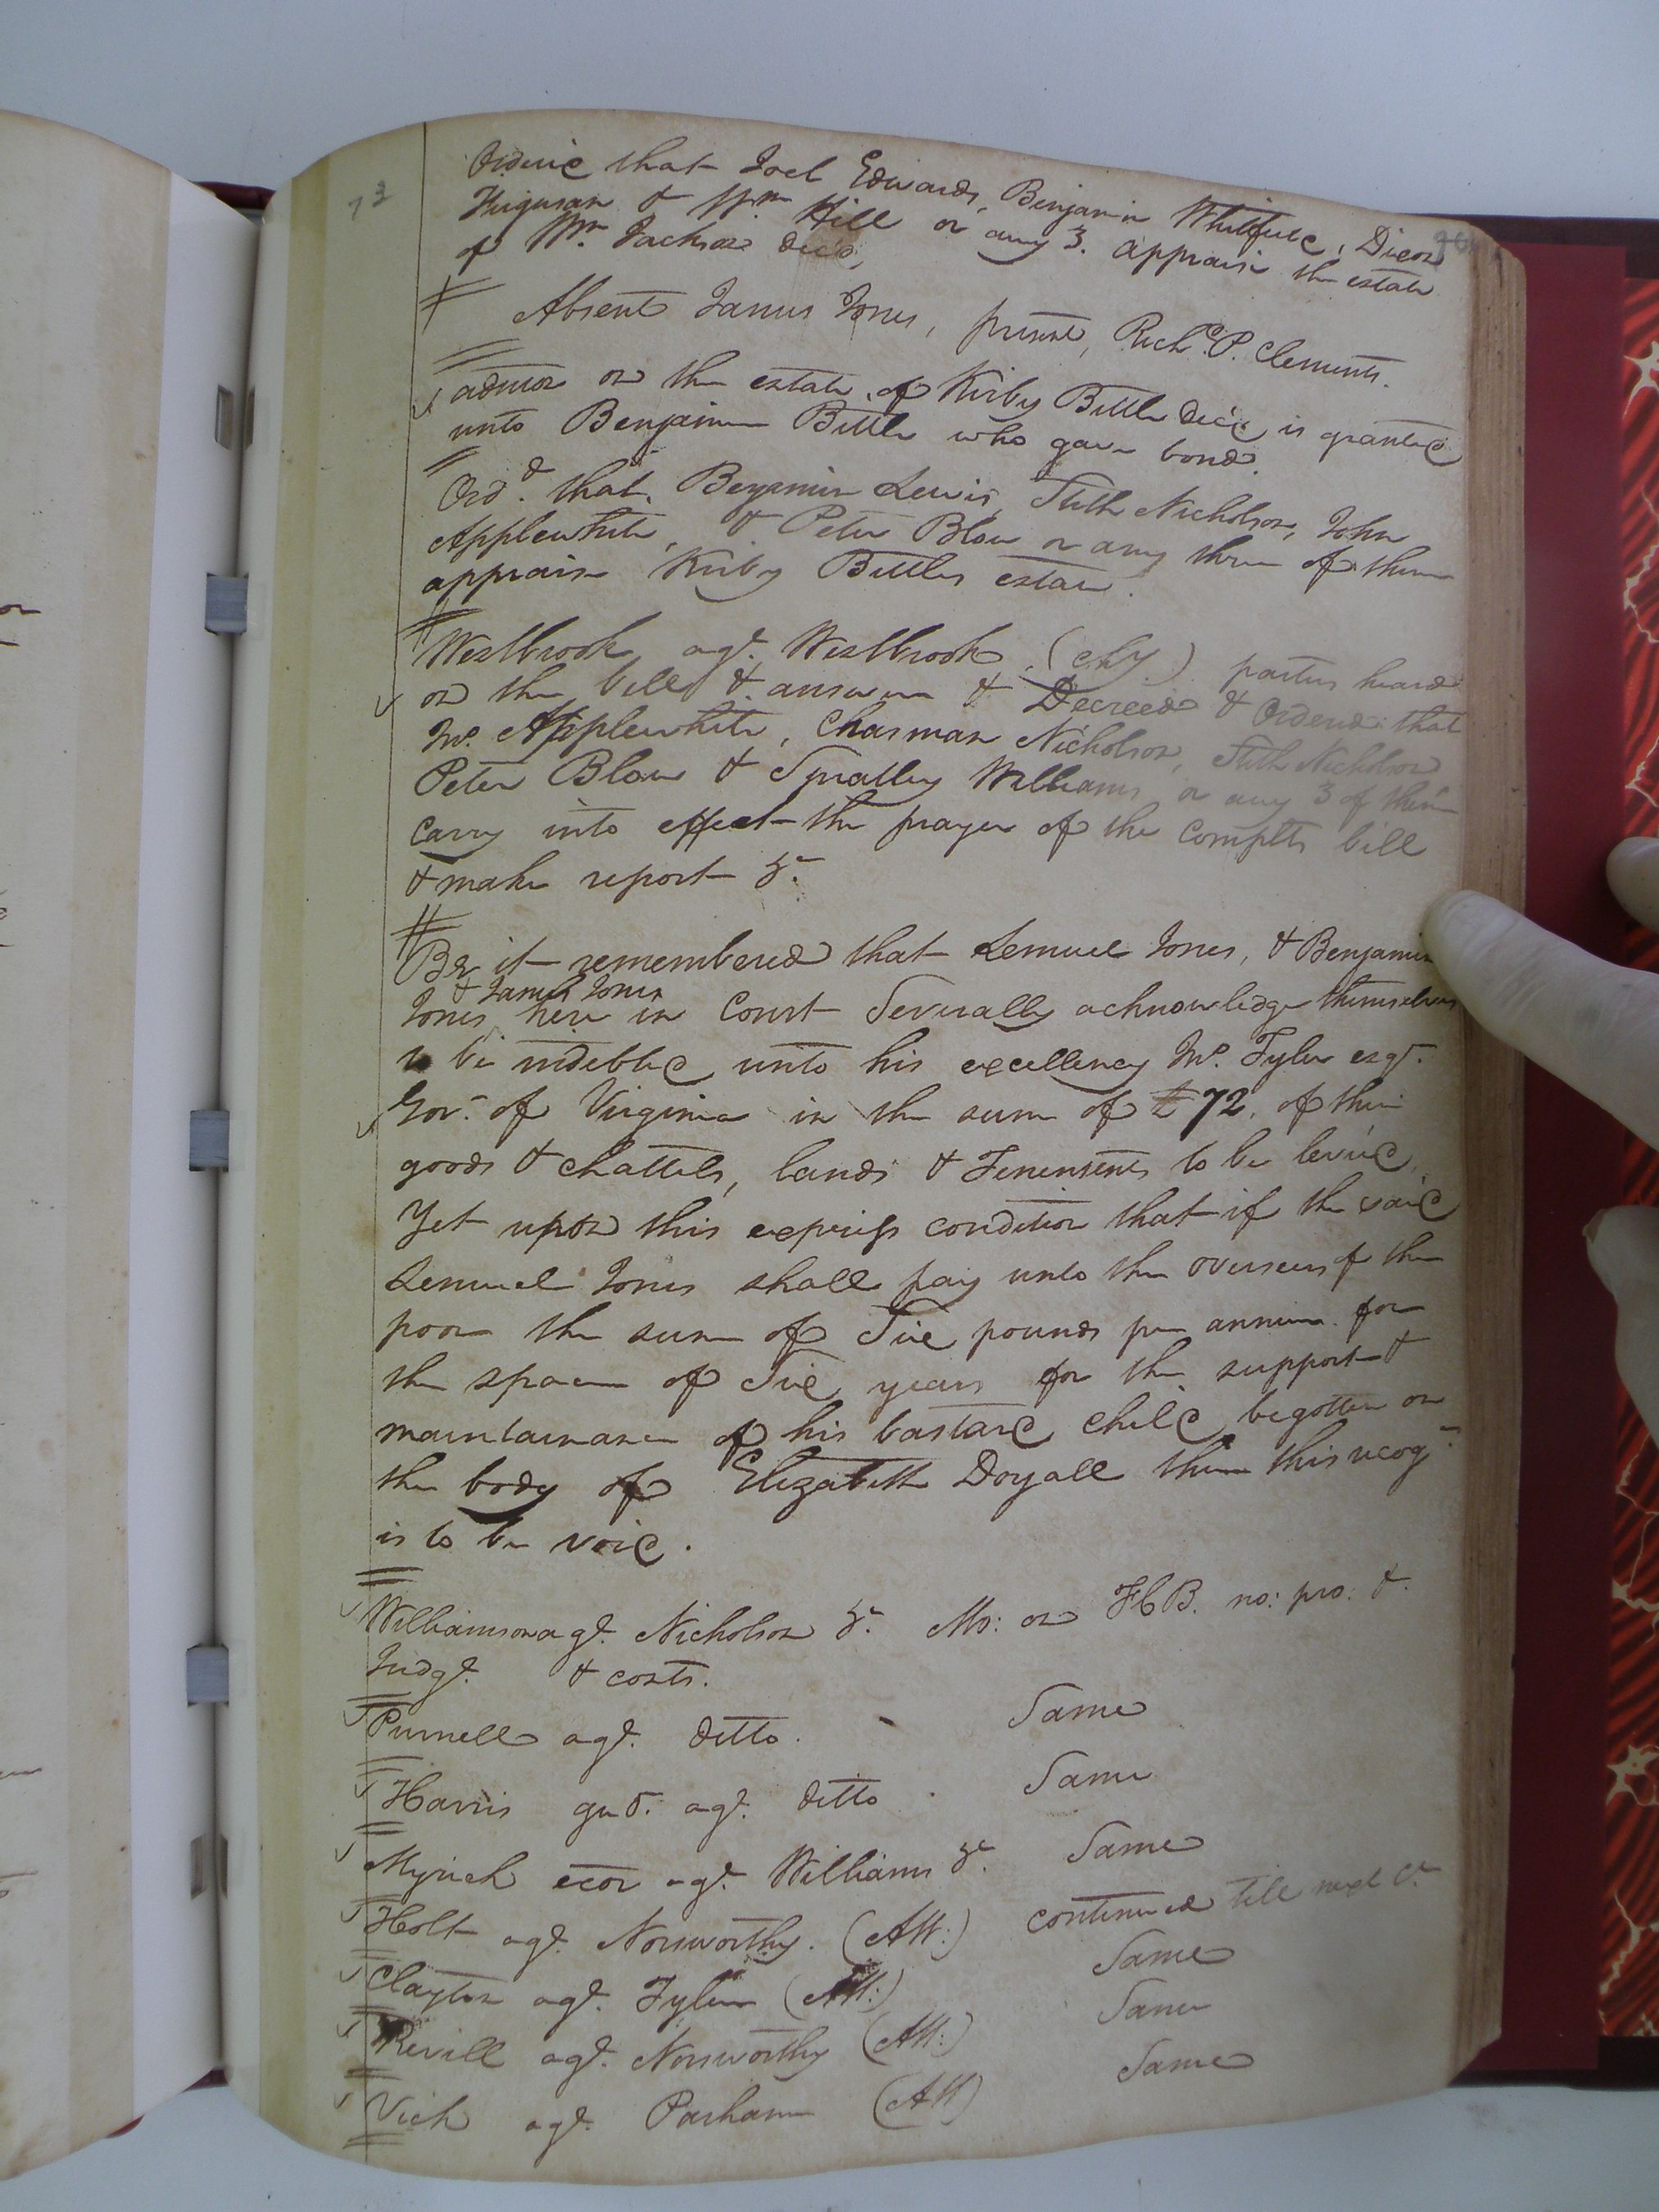 73
Ordered that Joel Edwards, Benjamin Whitfield, Dixon
Furguson & Wm Hill or any 3. appraise the estate
of Wm Jackson decd,
Absent James Jones, present, Richd. P. Clements.
admon on the estate of Kirby Bittle decd is granted
unto Benjamin Bittle who gave bond.
Ord^d. that, Benjamin Lewis, Stith Nicholson, John
Applewhite, & Peter Blow or any three of them
appraise Kirby Bittles estate.
Westbrook agt. Westbrook (chy) parties heard
on the bill & answer & Decreed & Ordered that
Jno. Applewhite, Charsman Nicholson, Stith Nicholson
Peter Blow & Spratley Williams or any 3 of them
carry into effect the prayer of the complts bill
& make report &c
Be it remembered that Lemuel Jones, & Benjamin
& James Jones
Jones here in Court Severally acknowledge themselves
to be indebted unto his excellency Jno. Tyler esqr.
Govr. of Virginia in the sum of £72, of their
goods & chattels, lands & Tenements to be levied,
Yet upon this express condition that if the said
Lemuel Jones shall pay unto the overseers of the
poor the sum of Six pounds per annum for
the space of Six years for the support &
maintainance of his bastard child begotten on
the body of Elizabeth Doyall then this recog
is to be void.
Williamson agt. Nicholson &c. Mo: on F B. no: pro. &.
Judgt. & costs.
Purnell agt. ditto. Same
Harris gud. agt. ditto. Same
Myrick exor agt. Williams &c. Same
Holt agt. Norsworthy. (Att:) continued till next Ct
Clayton agt. Tyler (Att:) Same
Revill agt. Norsworthy (Att:) Same
Vick agt. Parham (Att) Same